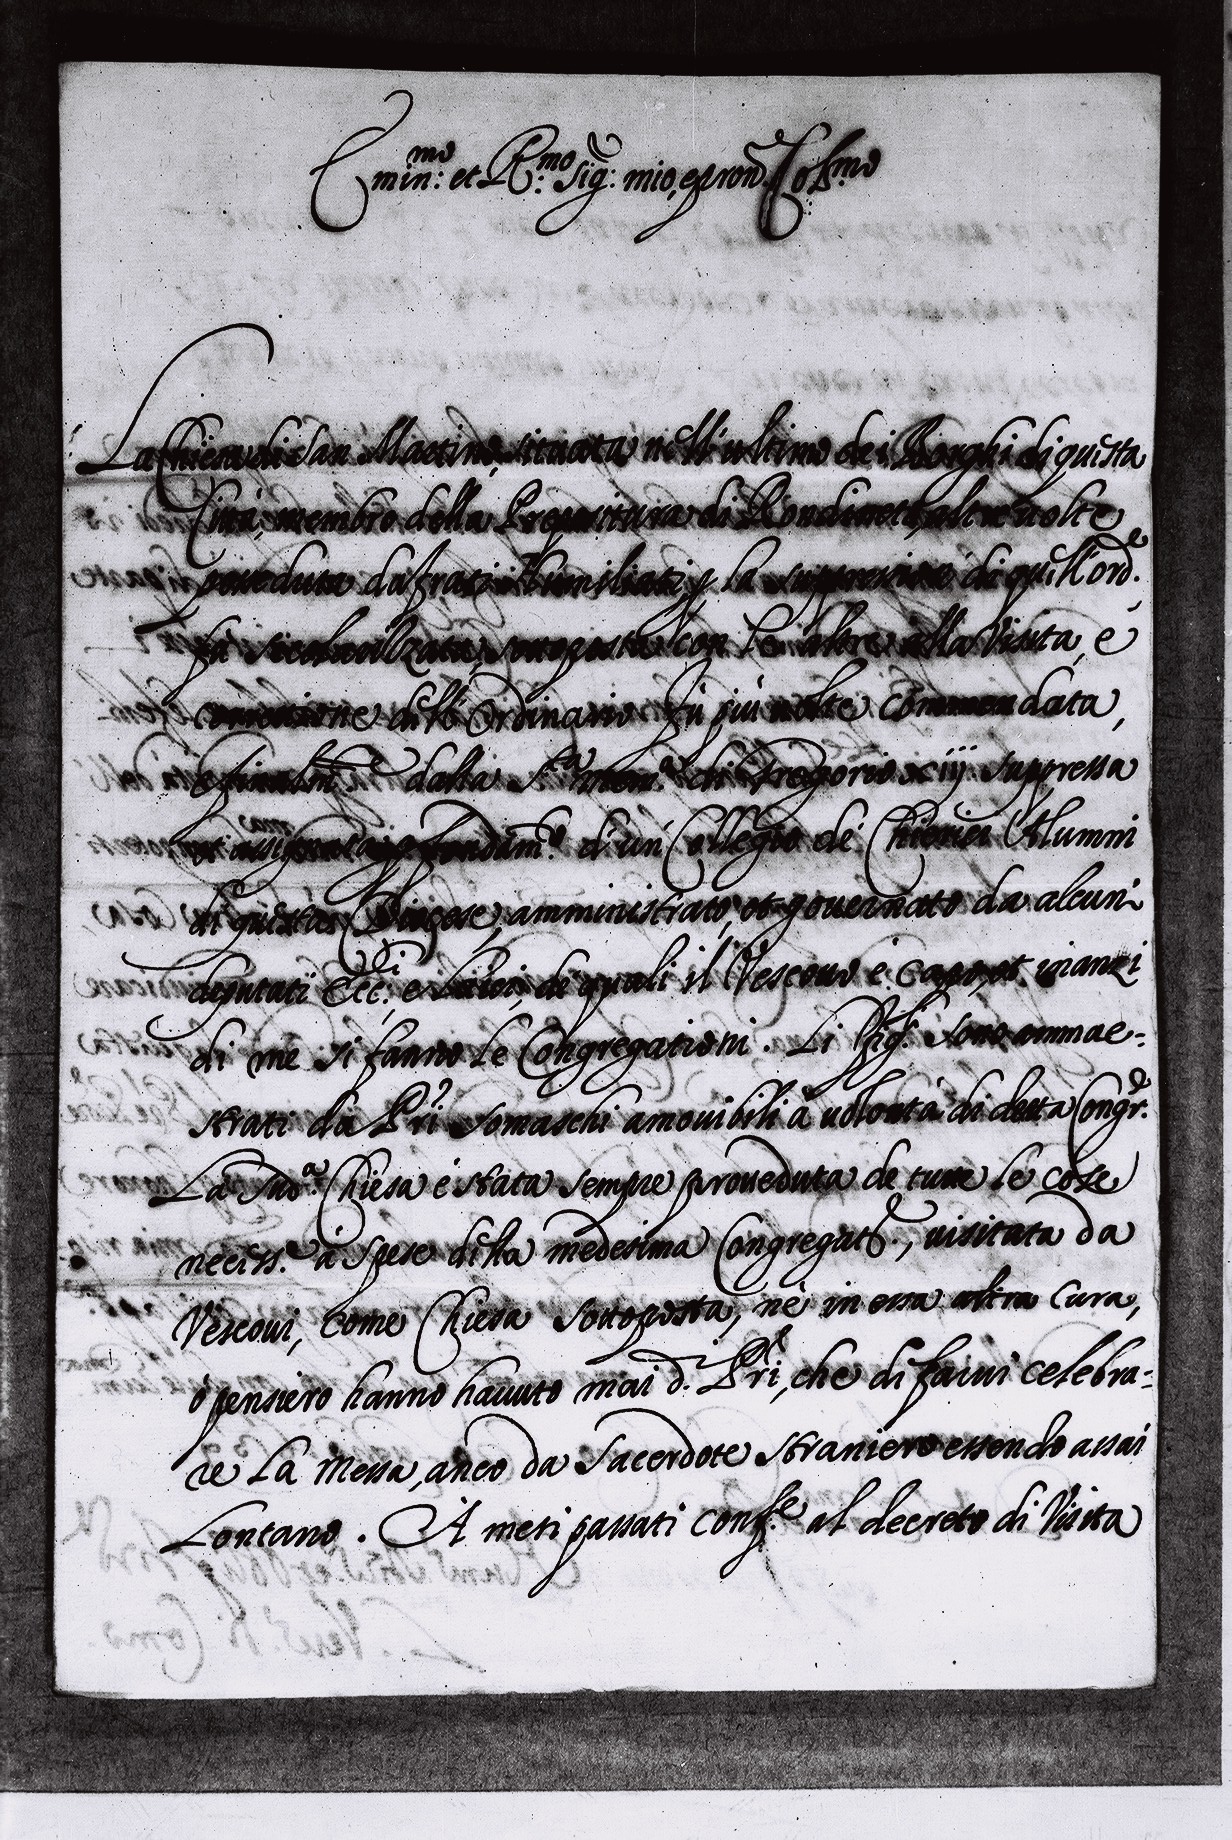 Emin.mo: et R.mo: Sig.: mio, e pron. Col.mo
La Chiesa di San Martino, situata nell'ultimo dei Borghi di questa
Città, membro della Prepositura di Rondineto, altre uolte
posseduta da frati Humiliati, p la suppressione di quell'ord.e
fù secolarizzata, sottoposta con le altre alla Visita, e
correttione dell'Ordinario fù più uolte Commendata,
e finalm.te dalla S.ta mem.a di Gregorio xiij suppressa
et assignata p fondam.o d'un Collegio de' Chierici Alumni
di questa Diocese, amministrato, et gouernato da alcuni
deputati Ecc.ci e Laici, de quali il Vescouo è Capo, et inanzi
di me si fanno le Congregationi. Li Figli. sono ammae-
strati da Pri Somaschi amouibili à uolontà di detta Congr.e
La Sud.a Chiesa è stata sempre proueduta de tutte le cose
necess.e à spese della medesima Congregat.e, uisitata da
Vescoui, come Chiesa sottoposta, nè in essa altra cura,
ò pensiero hanno hauuto mai d.i Pri, che di farui celebra-
re la Messa, anco da Sacerdote straniero essendo assai
Lontano. A mesi passati conf.e al decreto di Visita